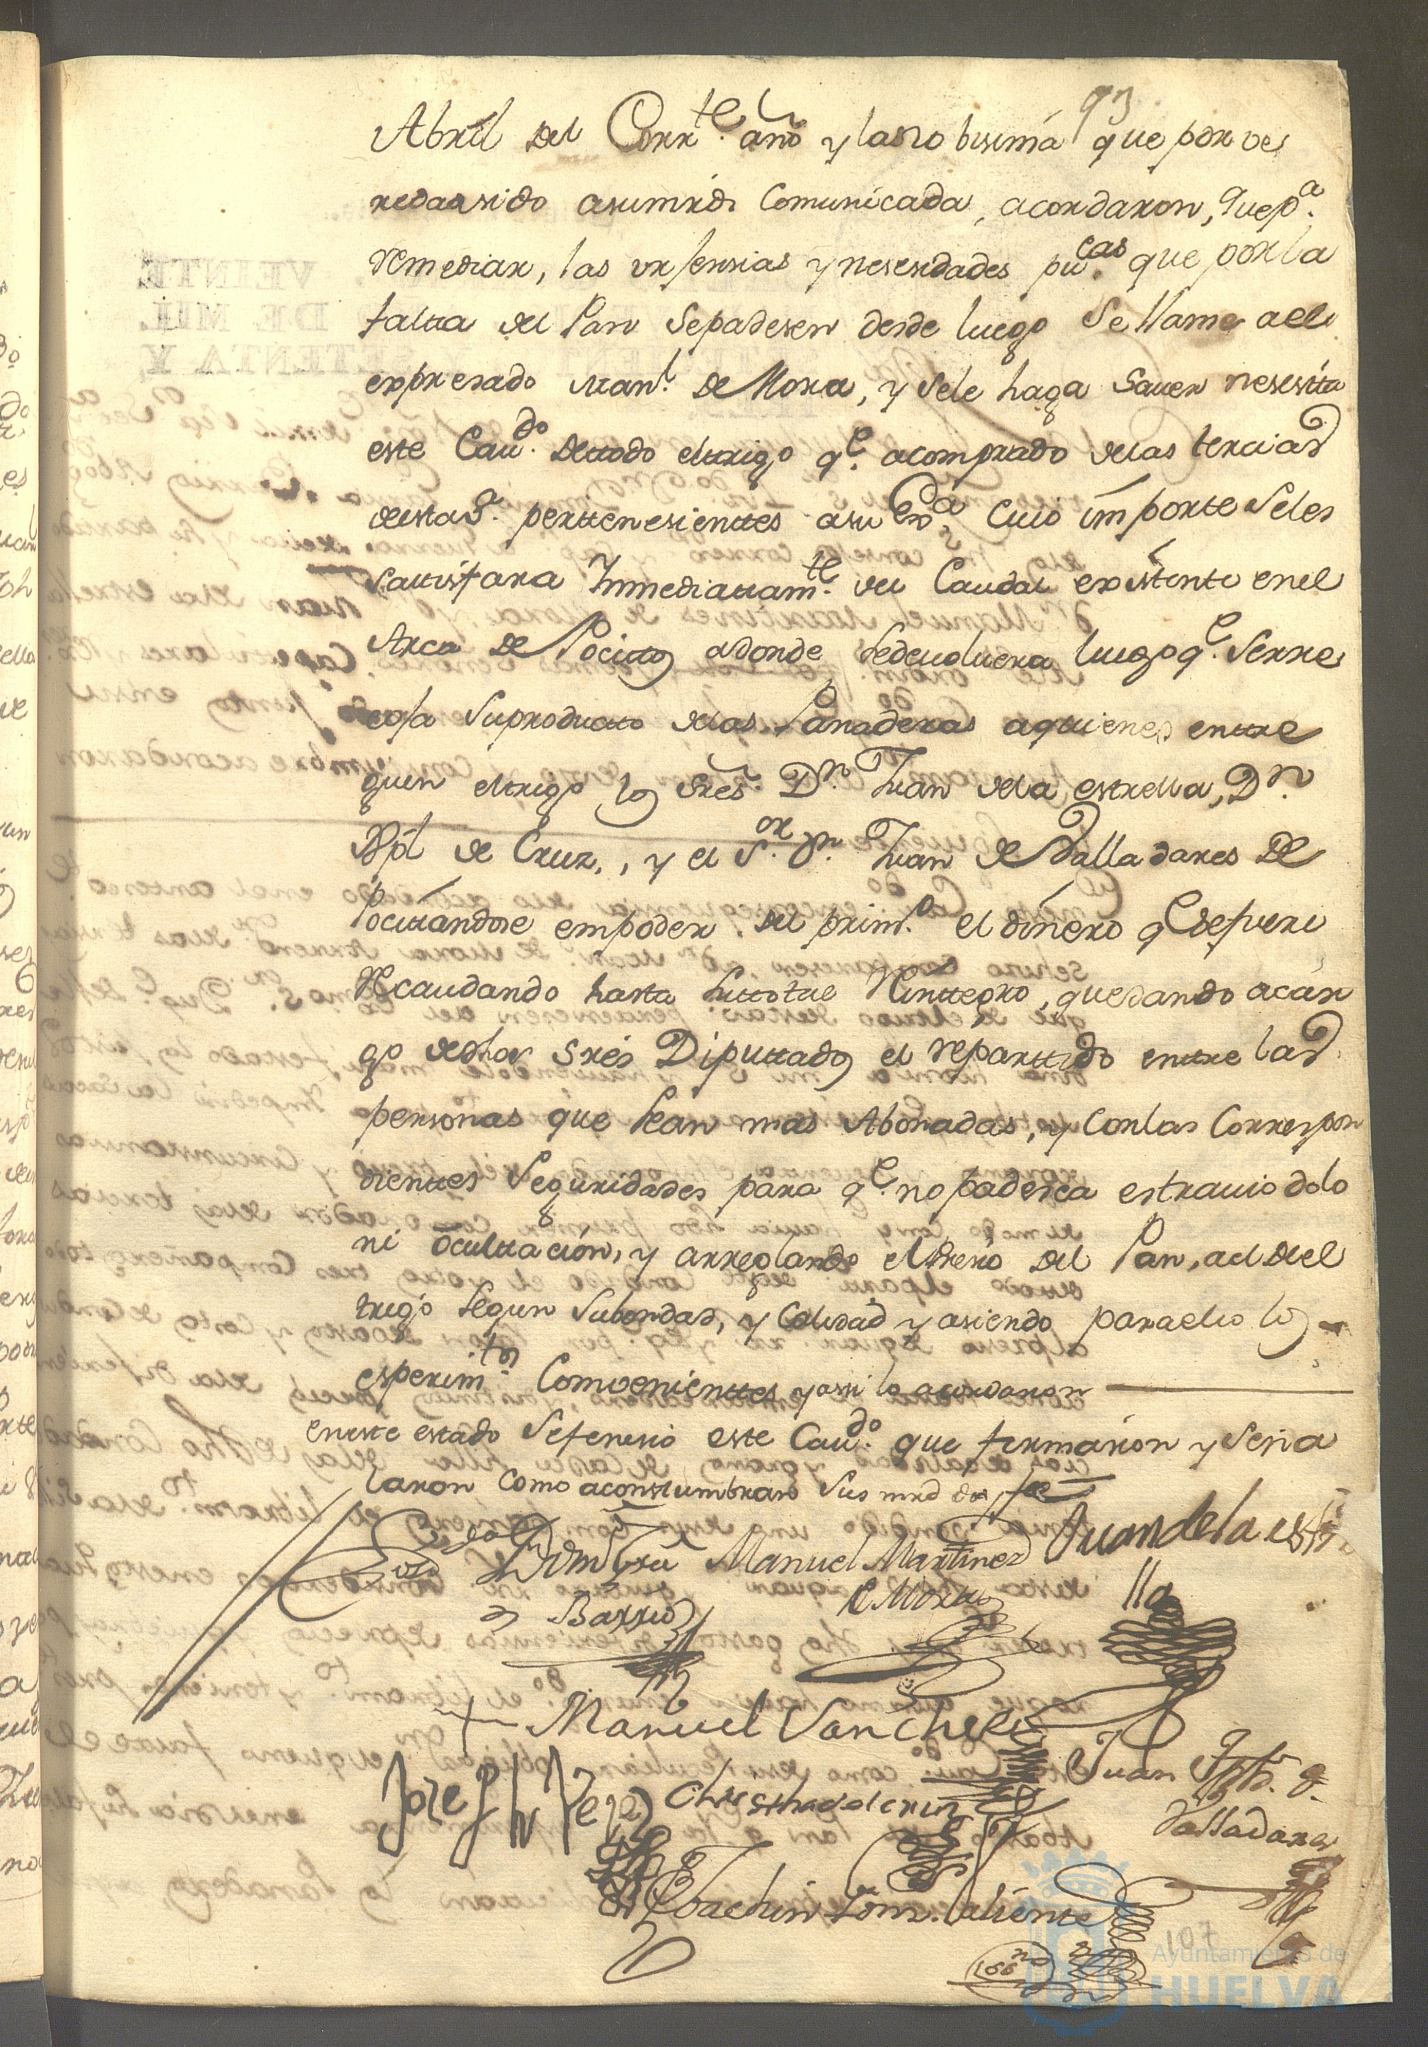 93
Abril del Corrte. año y la nobisima que por ve
redaasido asumrds comunicada, acordaron, que pa.
remediar, las urjensias y nesesidades pucas. que por la
faltta del Pan sepadesen desde luego Se llame a el
expresado Manl. de Mora, y sele haga saver nesesitta
este Caudo. detodo eltrigo qe. acomprado delas tercias
desta va. perttenesienttes asu Exa. cuio importe seles
sattisfara Inmediattamte. del Caudal existente enel
Arca de Pocitto adonde sedevoluera luego qe. serre
coja suproductto delas Panaderas aquienes enttre
guen eltrigo los Sres. Dn. Juan dela estrella, Dn.
Xptl de Cruz, y el Sor. Dn. Juan de Valladares De
pocitandose empoder del primo. el dinero qe sefuere
Recaudando hasta suttotal Ynttegro, quedando acar
go dedhos Sres Diputtados el repartido enttre las
personas que sean mas Abonadas, y conlas Correspon
dienttes Seguridades para qe. nopadesca estravio dolo
ni ocultacion, y arreglando el Presio del Pan, a el del
trigo segun subondad, y calidad y asiendo paraello los
esperimtos. Convenienttes y assi lo acordaron
eneste estado sefenesio este Caudo. que firmaron y seña
laron como acostumbran sus mrds doi fee
Manuel Martinez
de Mora
Juan dela estre
lla
Barrio
Manuel Sanches
Joseph
Juan
Valladares
Joachin Gonz. Valiente
107
Ayuntamiento de
HUELVA